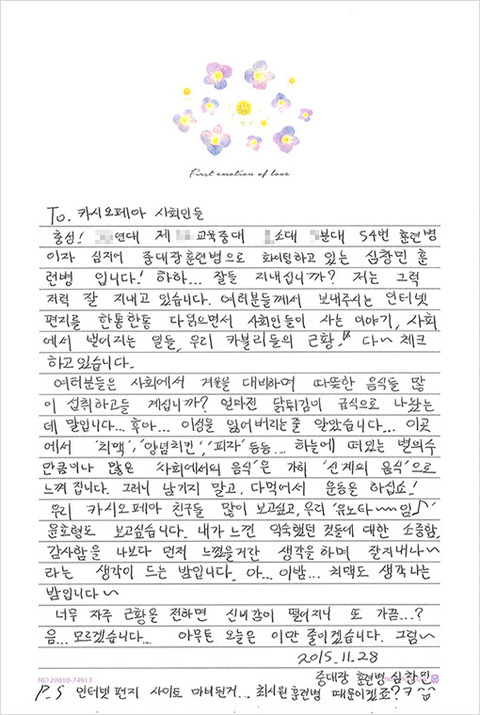 First emotion of love
To. 카시오페아 사회인들
충성! 연대 제 교육중대 소대 분대 54번 훈련병
이자 심지어 중대장훈련병으로 화이팅하고 있는 심창민 훈
련병 입니다! 하하... 잘들 지내십니까? 저는 그럭
저럭 잘 지내고 있습니다. 여러분들께서 보내주시는 인터넷
편지를 한통한통 다읽으면서 사회인들이 사는 이야기, 사회
에서 벌어지는 일들, 우리 카블리들의 근황! 다~ 체크
하고있습니다.
여러분들은 사회에서 겨울을 대비하며 따뜻한 음식들 많
이 섭취하고들 계십니까? 얼마전 닭튀김이 급식으로 나왔는
데 말입니다... 후아... 이성을 잃어버리는줄 알았습니다... 이곳
에서 '치맥', '양념치킨', '피자' 등등... 하늘에 떠있는 별의수
만큼이나 많은 '사회에서의 음식'은 가히 '신계의 음식'으로
느껴 집니다. 그러니 남기지 말고, 다먹어서 운동을 하십쇼!
우리 카시오페아 친구들 많이 보고싶고, 우리 '유노타~~임♪'
윤호형도 보고싶습니다. 내가 느낀 익숙했던 것들에 대한 소중함,
감사함을 나보다 먼저 느꼈을거란 생각을하며 잘지내나~
라는 생각이 드는 밤입니다. 아... 이밤... 치맥도 생각나는
밤입니다~
너무 자주 근황을 전하면 신비감이 떨어지니 또 가끔...?
음... 모르겠습니다... 아무튼 오늘은 이만 줄이겠습니다. 그럼~
2015. 11. 28
중대장 훈련병 심창민
NO.20010-74913
P.S 인터넷 편지 사이트 마비된거... 최시원훈련병 때문이겠죠?ㅋ